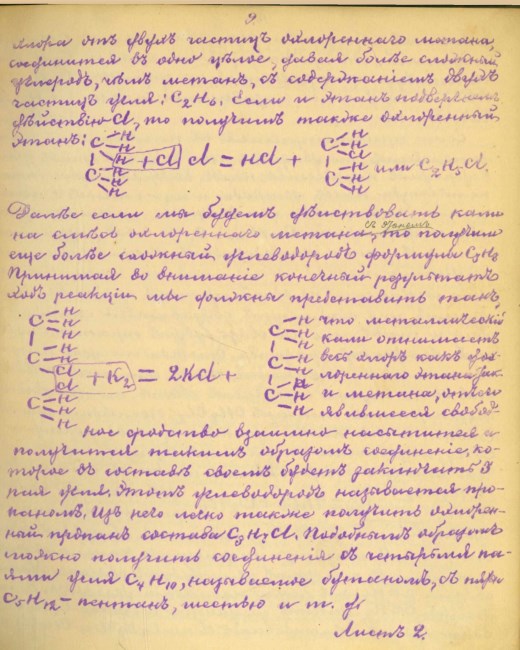 9
хлора отъ двухъ частицъ охлореннаго метана,
соединится въ одно цѣлое, давая болѣе сложный
углеродъ, чѣмъ метанъ, съ содержаніемъ двухъ
частицъ угля: C2H6. Если и этанъ подвергаемъ
дѣйствію Cl, то получимъ также охлоренный
этанъ:
C H H H + Cl Cl = HCl + C H H H или C2H5Cl.
C H H H C H H
Далѣе если мы будемъ дѣйствовать кали
на смѣсь охлореннаго метана съ этаномъ, то получимъ
еще болѣе сложный углеводородъ формулы C3H8
Принимая во вниманіе конечный результатъ
ходъ реакціи мы должны представить такъ,
что металлическій
кали отниметъ
весь хлоръ какъ у ох-
лореннаго этана так
и метана, отчего
явившееся свобод
C H H H C H H Cl + K2 = 2KCl + C H H H
Cl C H H H
ное сродство взаимно насытится и
получится такимъ образомъ соединеніе, ко-
торое въ составѣ своемъ будетъ заключать 3
пая угля. Этотъ углеводородъ называется про-
паномъ. Изъ него легко также получить охлорен-
ный пропанъ состава C3H7Cl. Подобнымъ образомъ
можно получить соединенія съ четырьмя па-
ями угля C4H10, называемое бутаномъ, съ пятью
C5H12 - пентанъ, шестью и т. д.
Листъ 2.